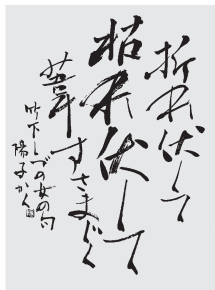 折れ伏して
枯れ伏して
葦すさまじく
竹下しづの女の句
陽子かく